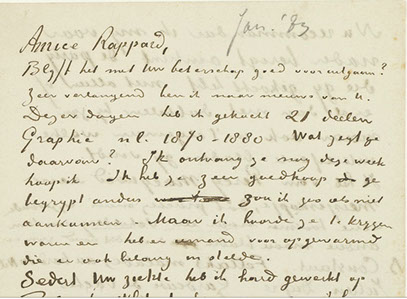 Jan. '83
Amice Rappard,
Blyft het met Uw beterschap goed vooruitgaan?
Zeer verlangend ben ik naar nieuws van U.
Dezer dagen heb ik gekocht 21 deelen
Graphic nl. 1870 - 1880 Wat zegt ge
daarvan? Ik ontvang ze nog deze week
hoop ik. Ik heb ze zeer goedkoop ge
begrypt anders zou ik ze ook niet
aankunnen. Maar ik hoorde ze te krygen
waren en heb er iemand voor opgewarmd
die er ook belang in stelde.
Sedert Uw ziekte heb ik hard gewerkt op